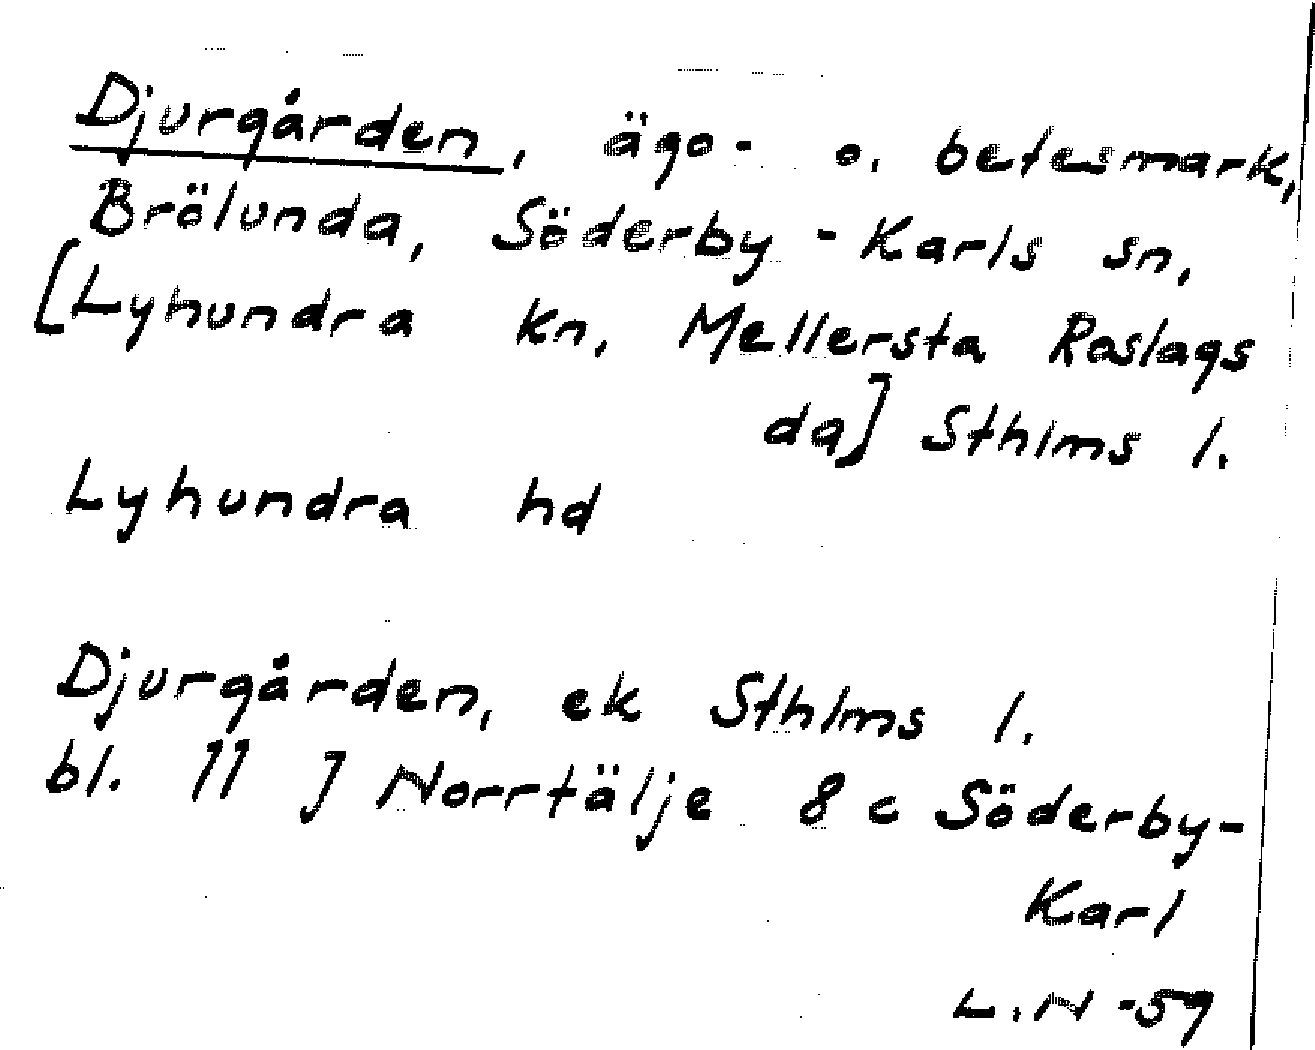 Djurgården, ägo- o. betesmark,
Brölunda, Söderby-Karls sn,
[Lyhundra kn, Mellersta Roslags
da] Sthlms l.
Lyhundra hd
Djurgården, ek Sthlms l.
bl. 11 J Norrtälje 8 c Söderby-
Karl
L.N -59